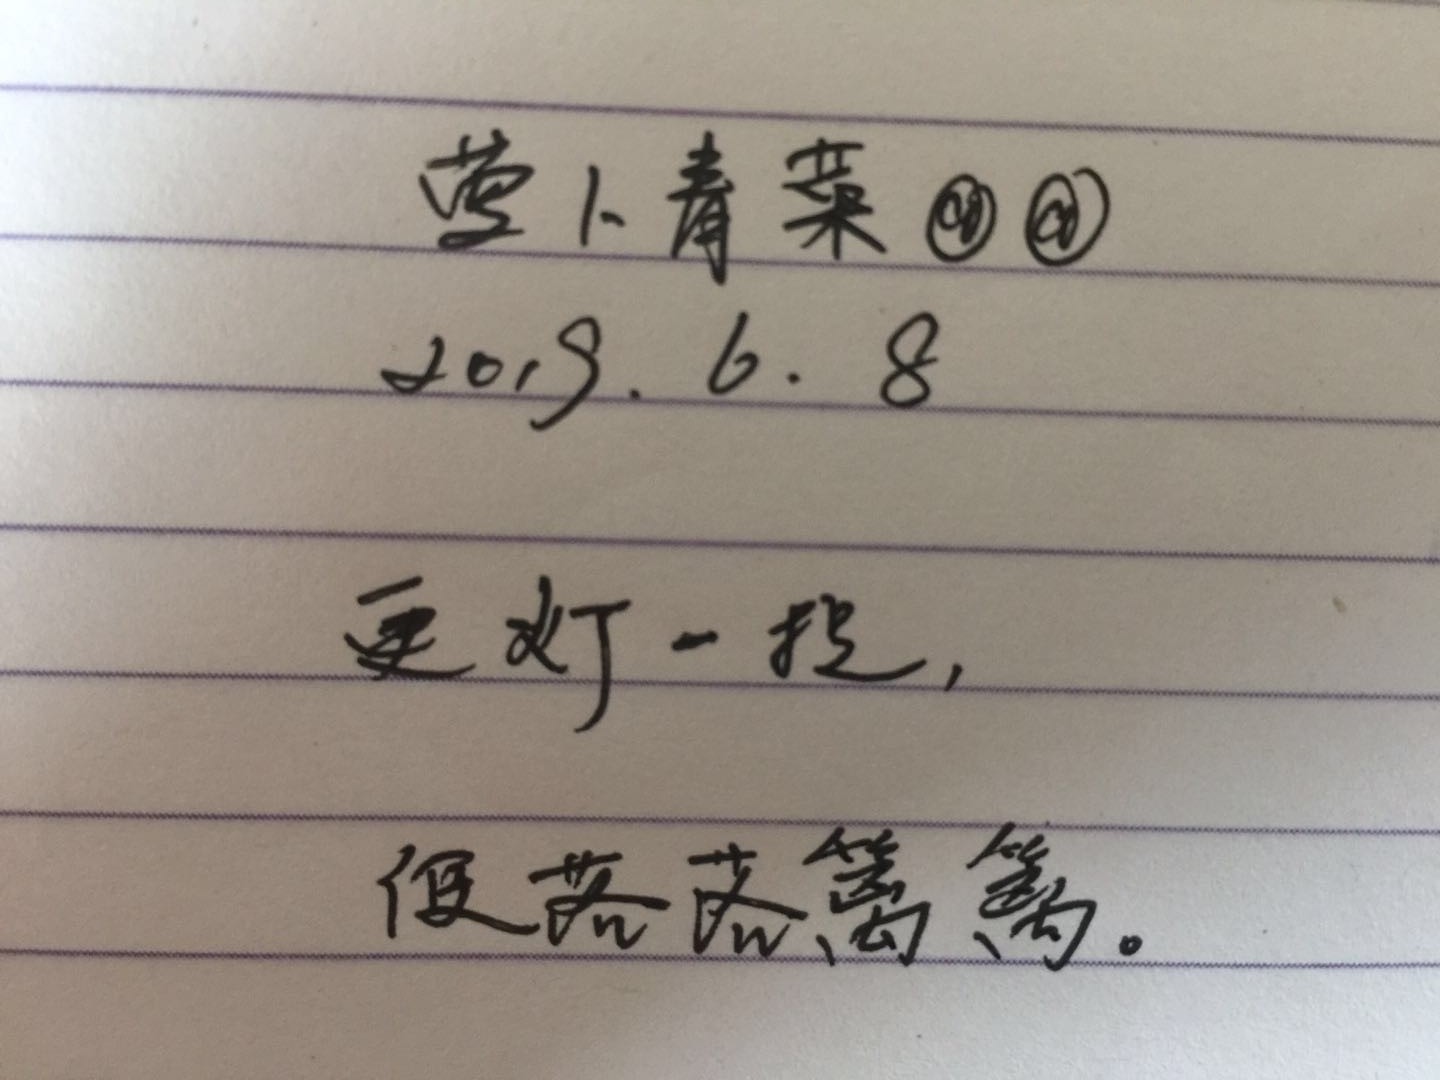 萝卜青菜
2019.6.8
更灯一投,
便落落篱篱。